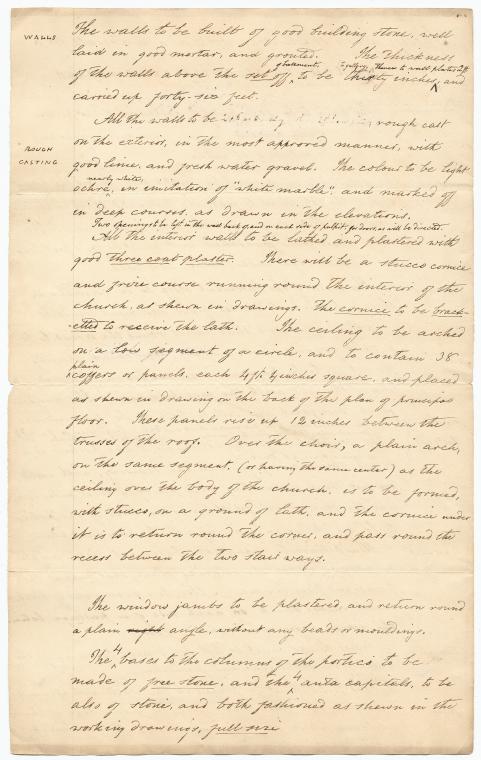 WALLS
The walls to be built of good building stone, well
laid in good mortar, and grouted. The thickness
of the walls above the set off, to be thirty inches, and
of basement,
carried up forty-six feet.
All the walls to be rough cast
ROUGH CASTING
on the exterior, in the most approved manner, with
good lime, and fresh water gravel. The colour to be light
nearly white,
ochre, in imitation of "white marble", and marked off
in deep courses, as drawn in the elevations.
Two openings to be left in the wall back of, and on each side of pulpit, for doors, as will be directed.
All the interior walls to be lathed and plastered with
good three coat plaster. There will be a stucco cornice
and frize course running round the interior of the
church, as shewn in drawings. The cornice to be brack-
-etted to receive the lath. The ceiling to be arched
on a low segment of a circle, and to contain 38
plain
coffers or panels, each 4 ft. 4 inches square, and placed
as shewn in drawing on the back of the plan of principal
floor. These panels rise up 12 inches between the
trusses of the roof. Over the choir, a plain arch,
on the same segment, (or having the same center) as the
ceiling over the body of the church, is to be formed,
with stucco, on a ground of lath, and the cornice under
it is to return round the corner, and pass round the
recess between the two stair ways.
The window jambs to be plastered, and return round
a plain right angle, without any beads or mouldings.
The 4 bases to the columns of the portico to be
made of free stone, and the 4 anta capitals, to be
also of stone, and both fashioned as shewn in the
working drawings, full size